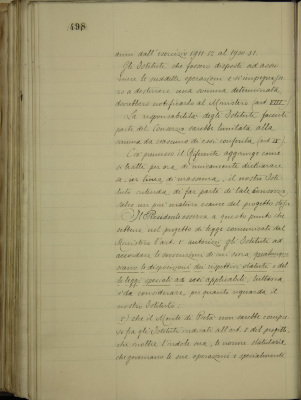 498
anni dall'esercizio 1911-12 al 1920-21.
Gli Istituti che fossero disposti ad assu-
mere le suddette operazioni e si impegnasse-
ro a destinare una somma determinata
dovrebbero notificarlo al Ministero (art. VIII.)
La responsabilità degli Istituti facenti
parte del Consorzio sarebbe limitata alla
somma da ciascuno di essi conferita (art IX).
Ciò premesso il Riferente aggiunge come
si tratti per ora di unicamente dichiarare
se, in linea di massima, il nostro Isti-
tuto intenda di far parte di tale Consorzio
salvo un più maturo esame del progetto
Il Presidente osserva a questo punto che
sebbene nel progetto di legge comunicato dal
Ministero l'art. 1° autorizzi gli Istituti ad
accordare le sovvenzioni di cui sopra qualunque
siano le disposizioni dei rispettivi statuti e del-
le leggi speciali ad essi applicabili, tuttavia
è da considerare, per quanto riguarda il
nostro Istituto:
1° che il Monte di Pietà non sarebbe compre-
so fra gli Istituti indicati all'art. 2 del progetto,
che inoltre l'indole sua, le norme statutarie
che governano le sue operazioni e specialmente